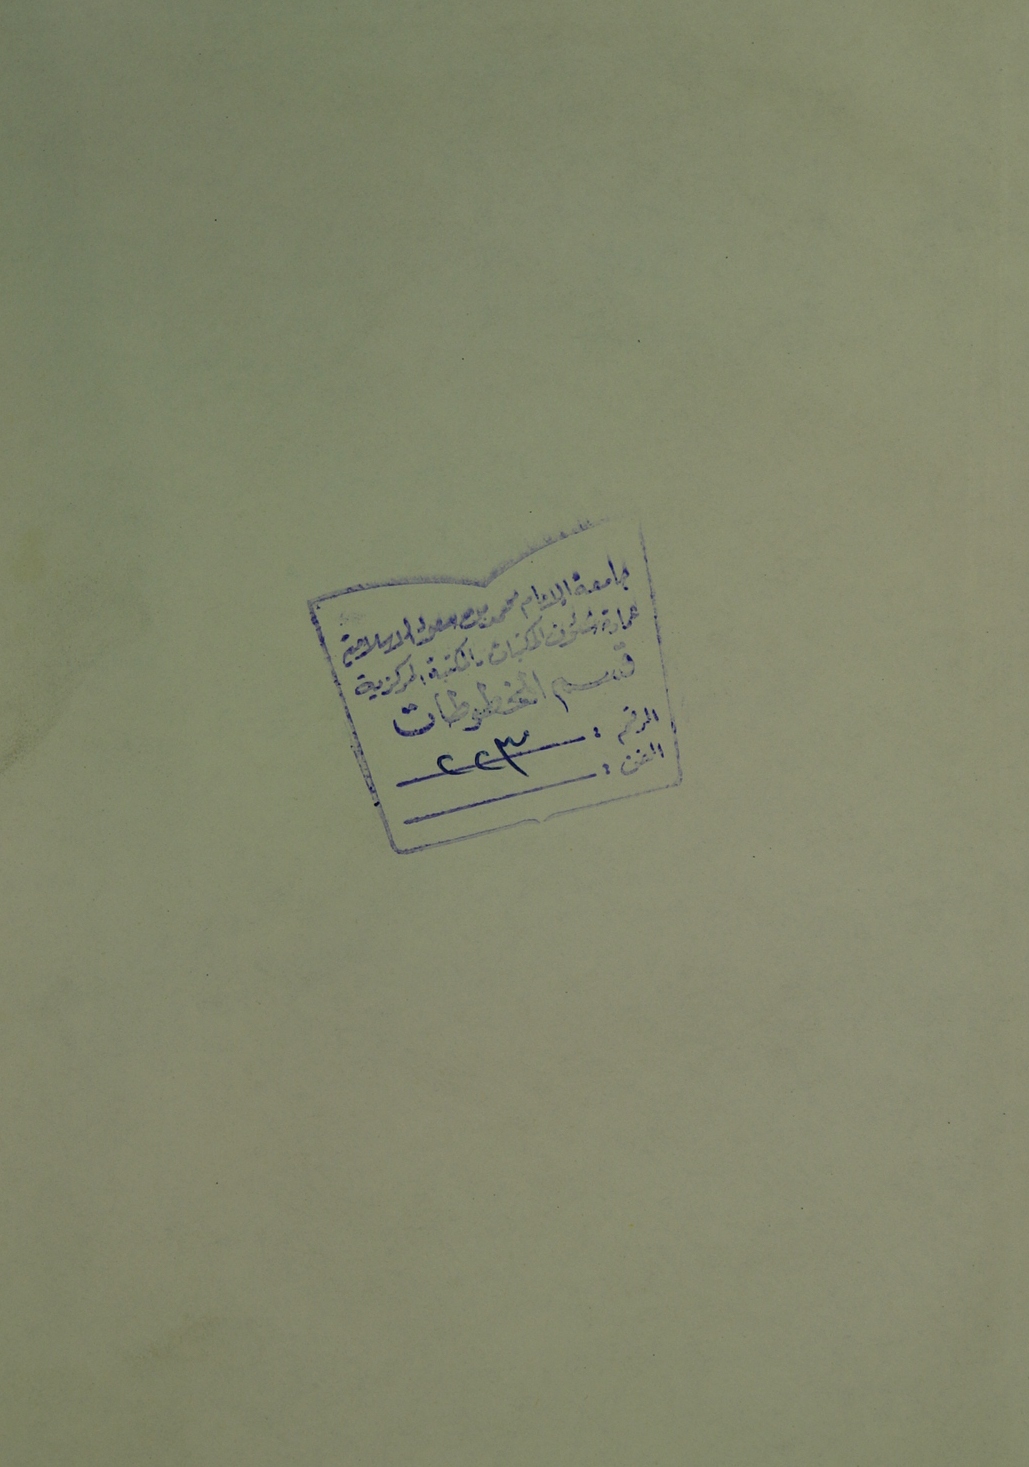 جامعة الإمام محمد بن سعود الإسلامية
عمادة شئون المكتبات - المكتبة المركزية
قسم المخطوطات
الرقم : ٢٢٣
الفن :